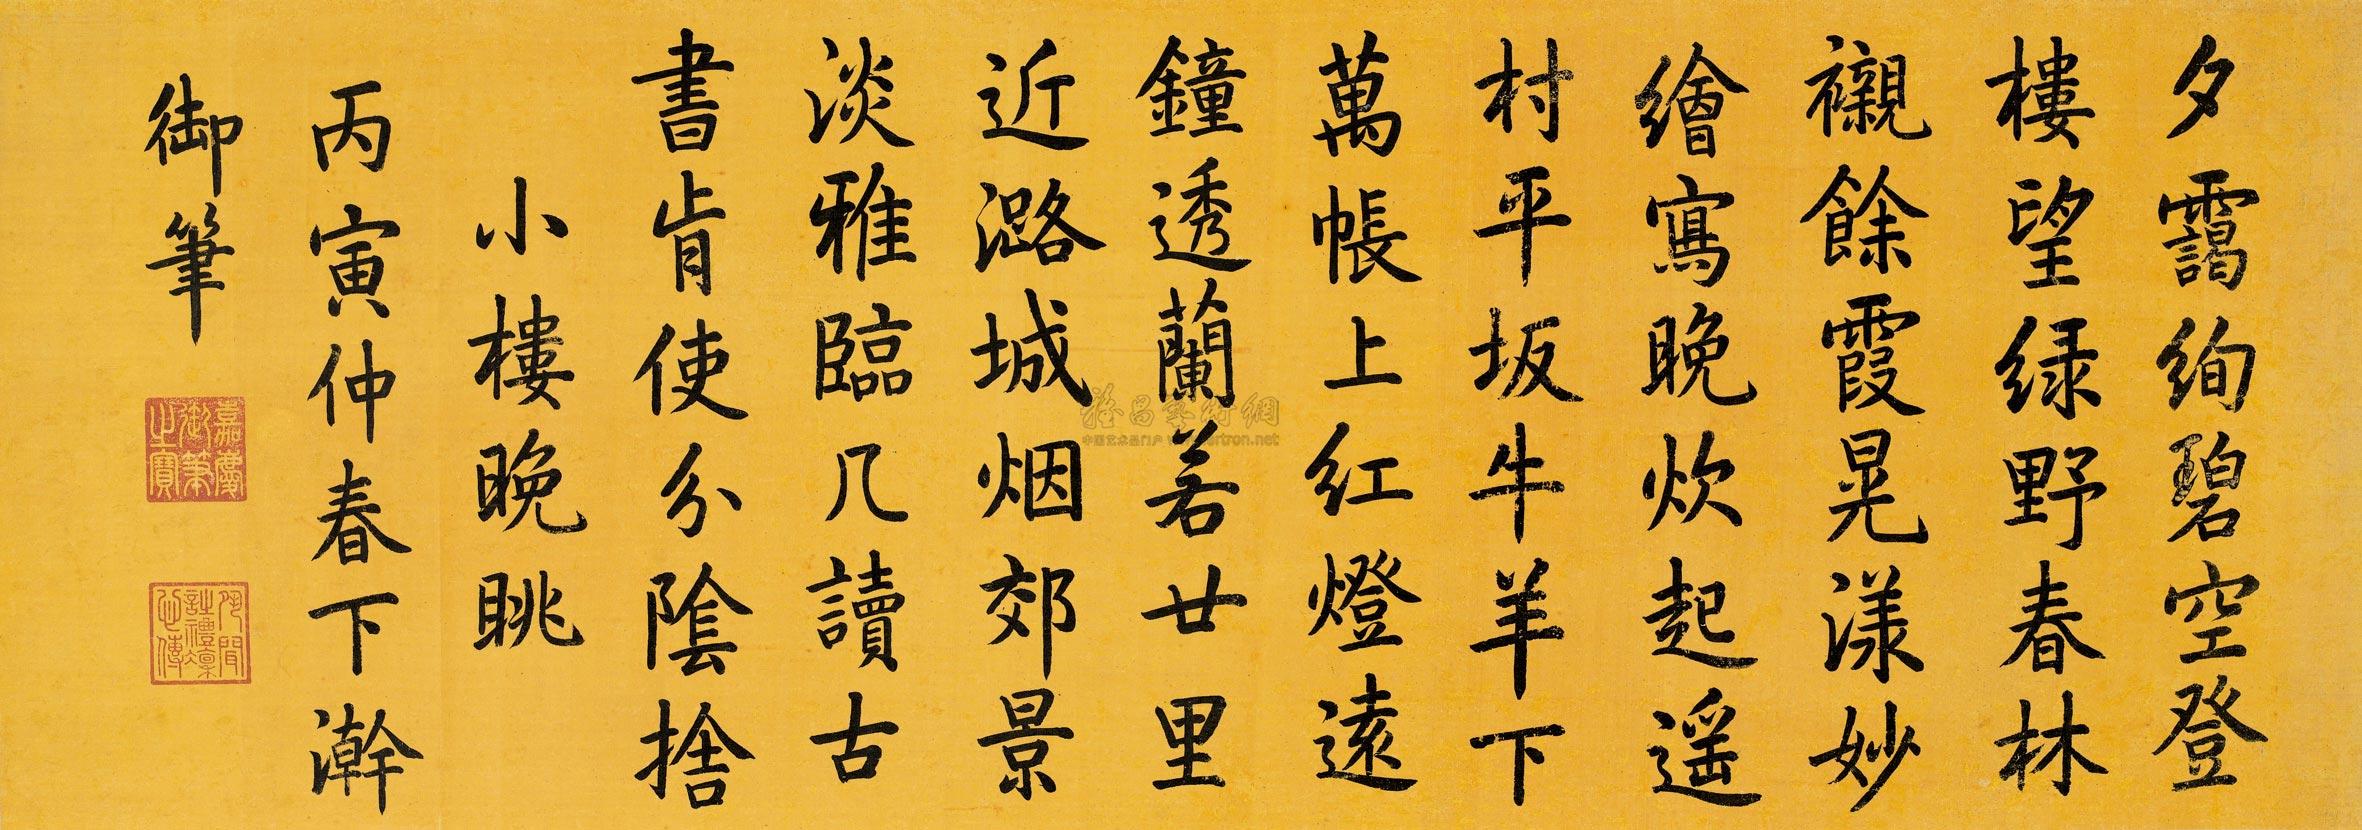 夕靄絢碧空登
樓望绿野春林
襯餘霞晃漾妙
繪寫晚炊起遥
村平坂牛羊下
萬帳上红燈遠
鐘透蘭若廿里
近潞城烟郊景
淡雅臨几讀古
書肯使分陰捨
小樓晚眺
丙寅仲春下澣
御筆
嘉慶
御筆
之寶